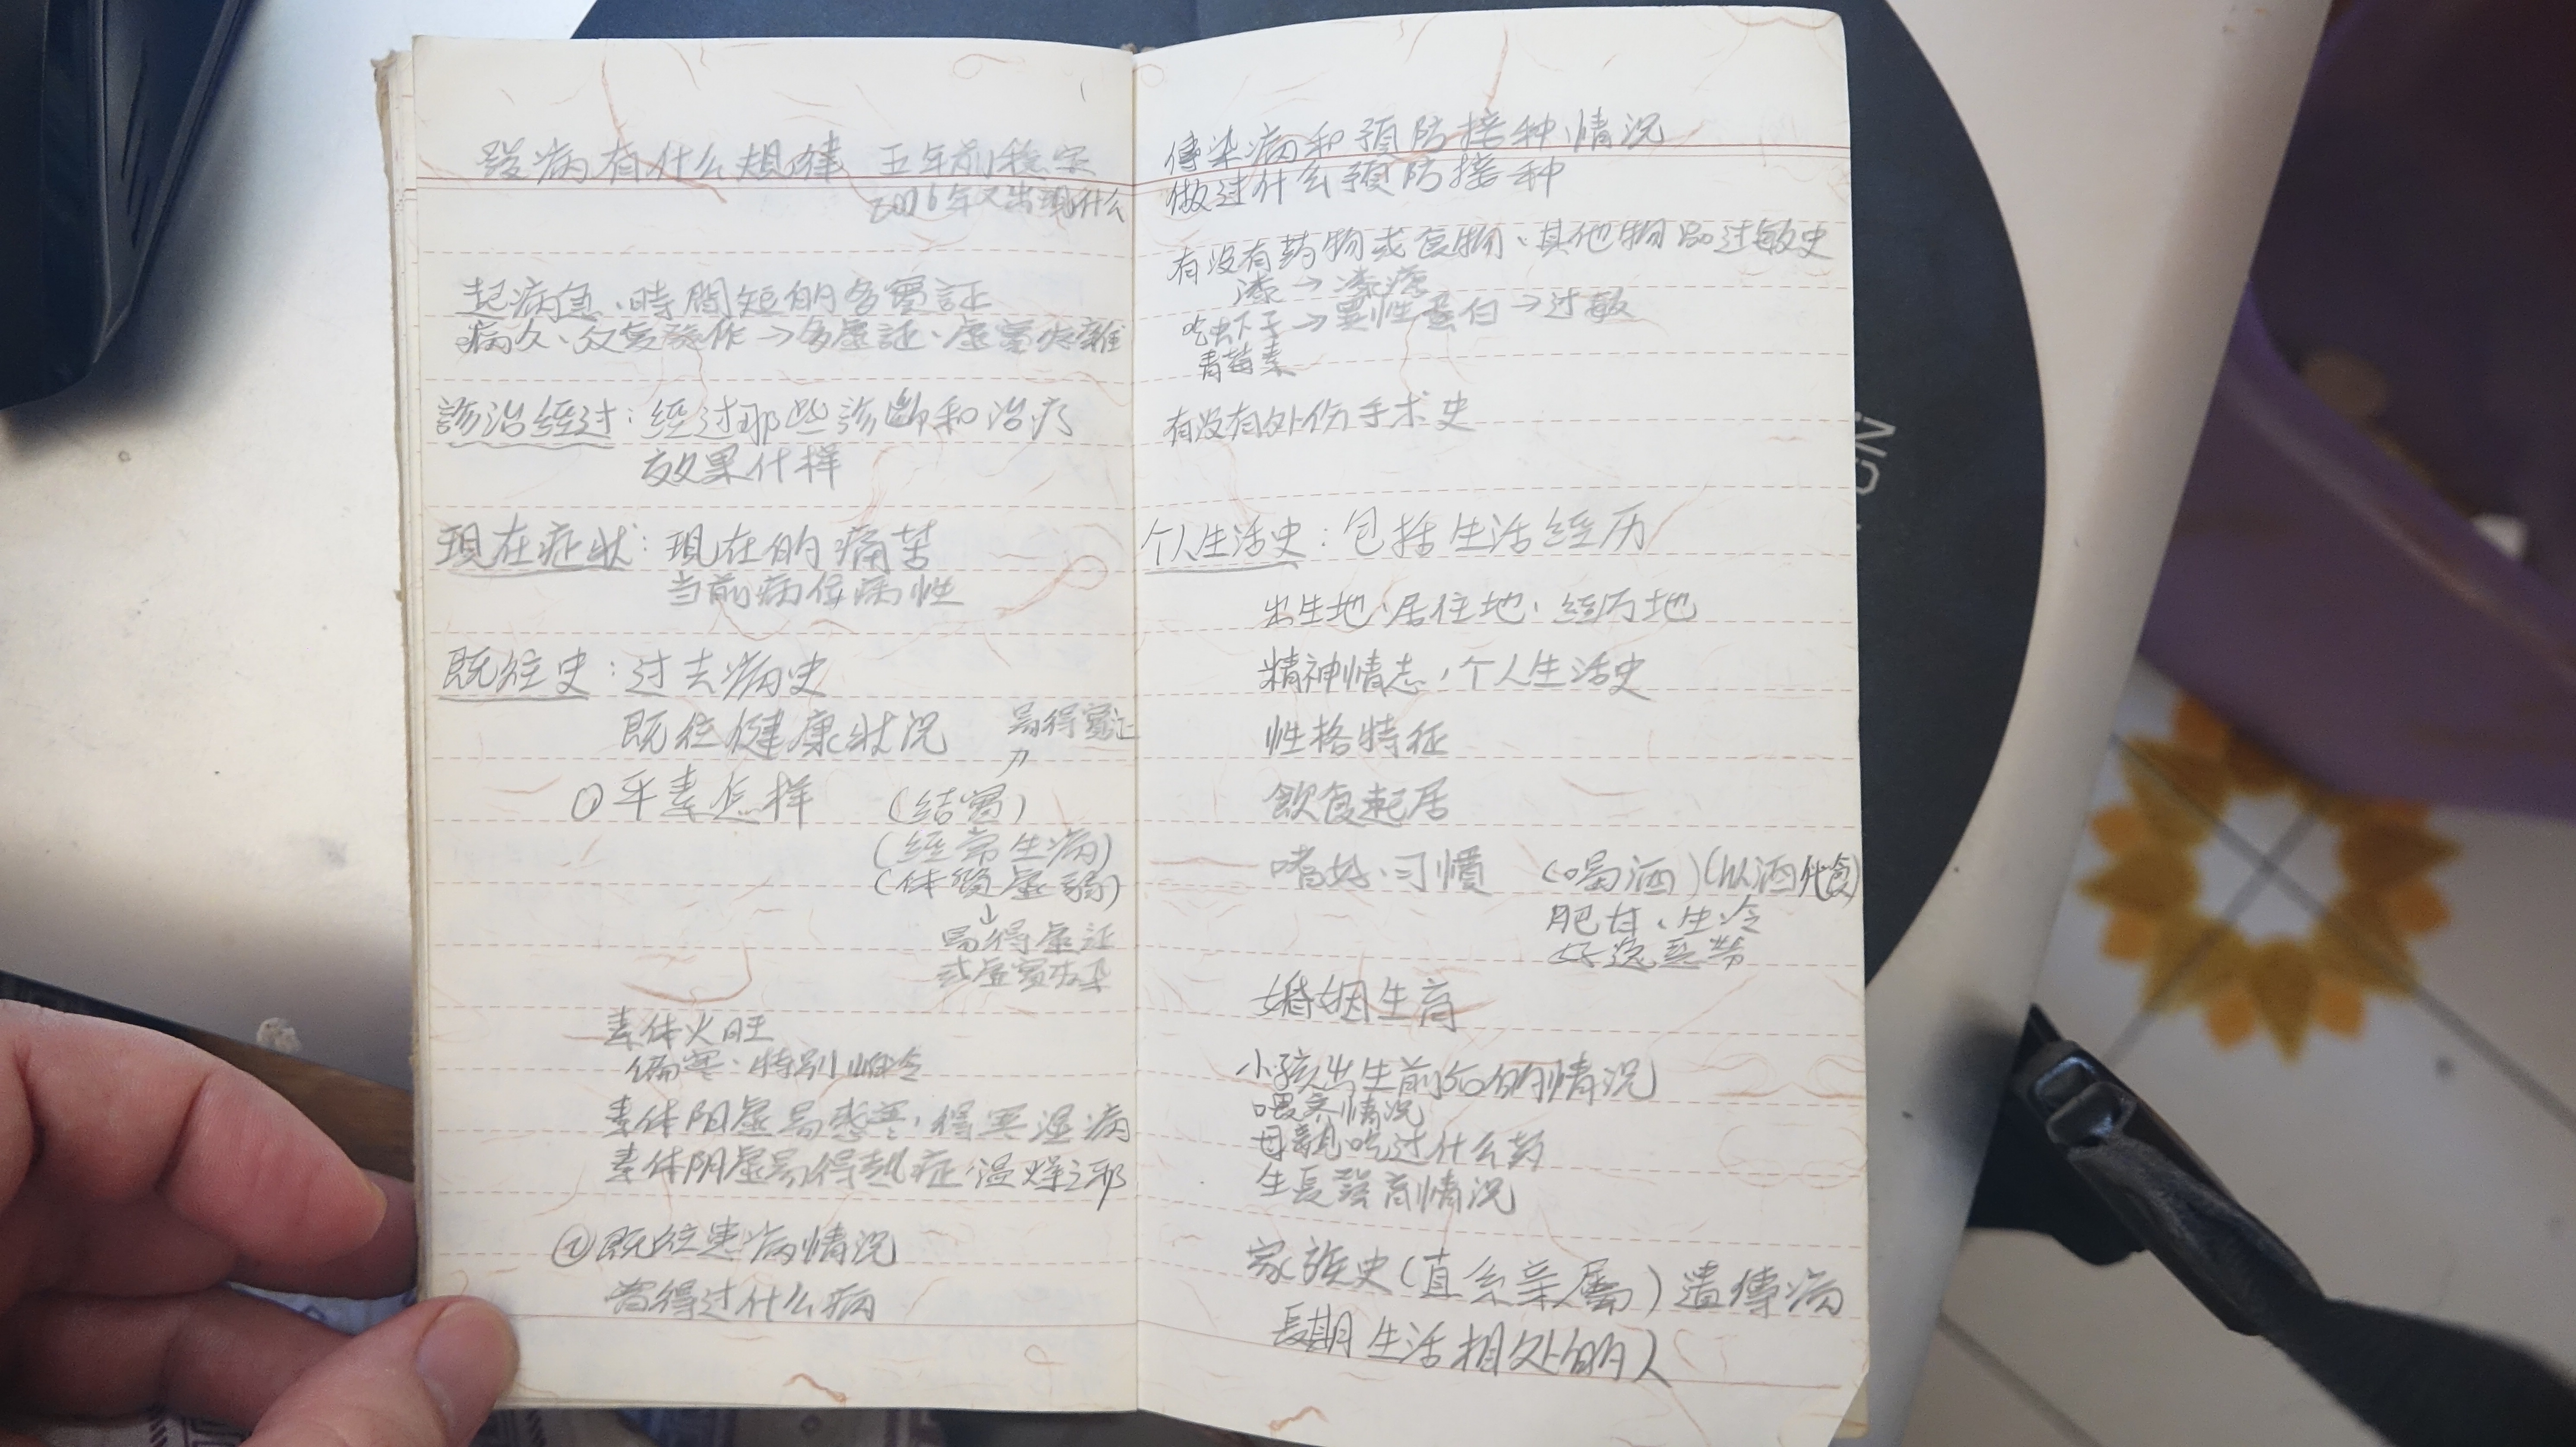 發病有什么規律 五年前稳定
2006年又出現什么
起病急、時間短的多實証
病久、反复發作→多虚証、虚實夹雜
診治经过：经过那些診断和治疗
效果什样
現在症状：現在的痛苦
当前病位病性
既往史：过去病史
既往健康状况 易得實证
①平素怎样 (结實)
(经常生病)
(体質虚弱)
↓
易得虚证
或虚實夹杂
素体火旺
偏寒：特别怕冷
素体阳虚易感寒，得寒湿病
素体阴虚易得热症 温燥之邪
②既往患病情况
曾得过什么病
傳染病和預防接种情况
做过什么預防接种
有没有药物或食物、其他物品过敏史
漆→漆瘡
吃虫下子→異性蛋白→过敏
青莓素
有没有外伤手术史
个人生活史：包括生活经历
出生地、居住地、经历地
精神情志，个人生活史
性格特征
飲食起居
嗜好、习慣 (喝酒)(以酒代食)
肥甘、生冷
好逸恶劳
婚姻生育
小孩出生前后的情况
喂养情况
母親吃过什么药
生長發育情况
家族史(直系亲屬)遺傳病
長期生活相处的人
NO.